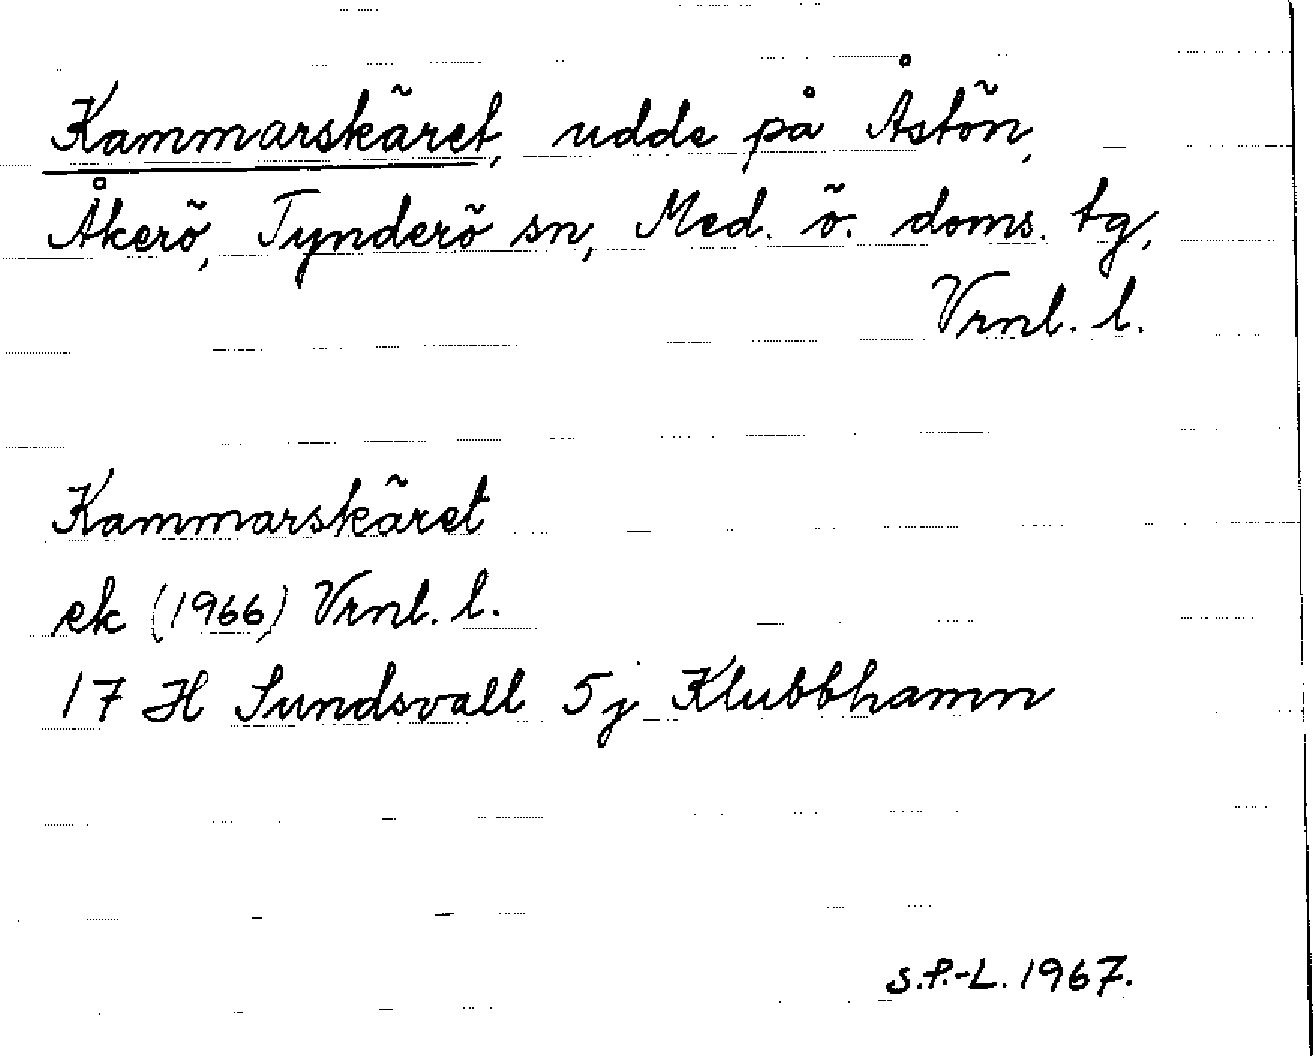 Kammarskäret, udde på Åstön,
Åkerö, Tynderö sn, Med. ö. doms. tg,
Vrnl. l.
Kammarskäret
ek (1966) Vrnl. l.
17 H Sundsvall 5j Klubbhamn
S.P.-L. 1967.